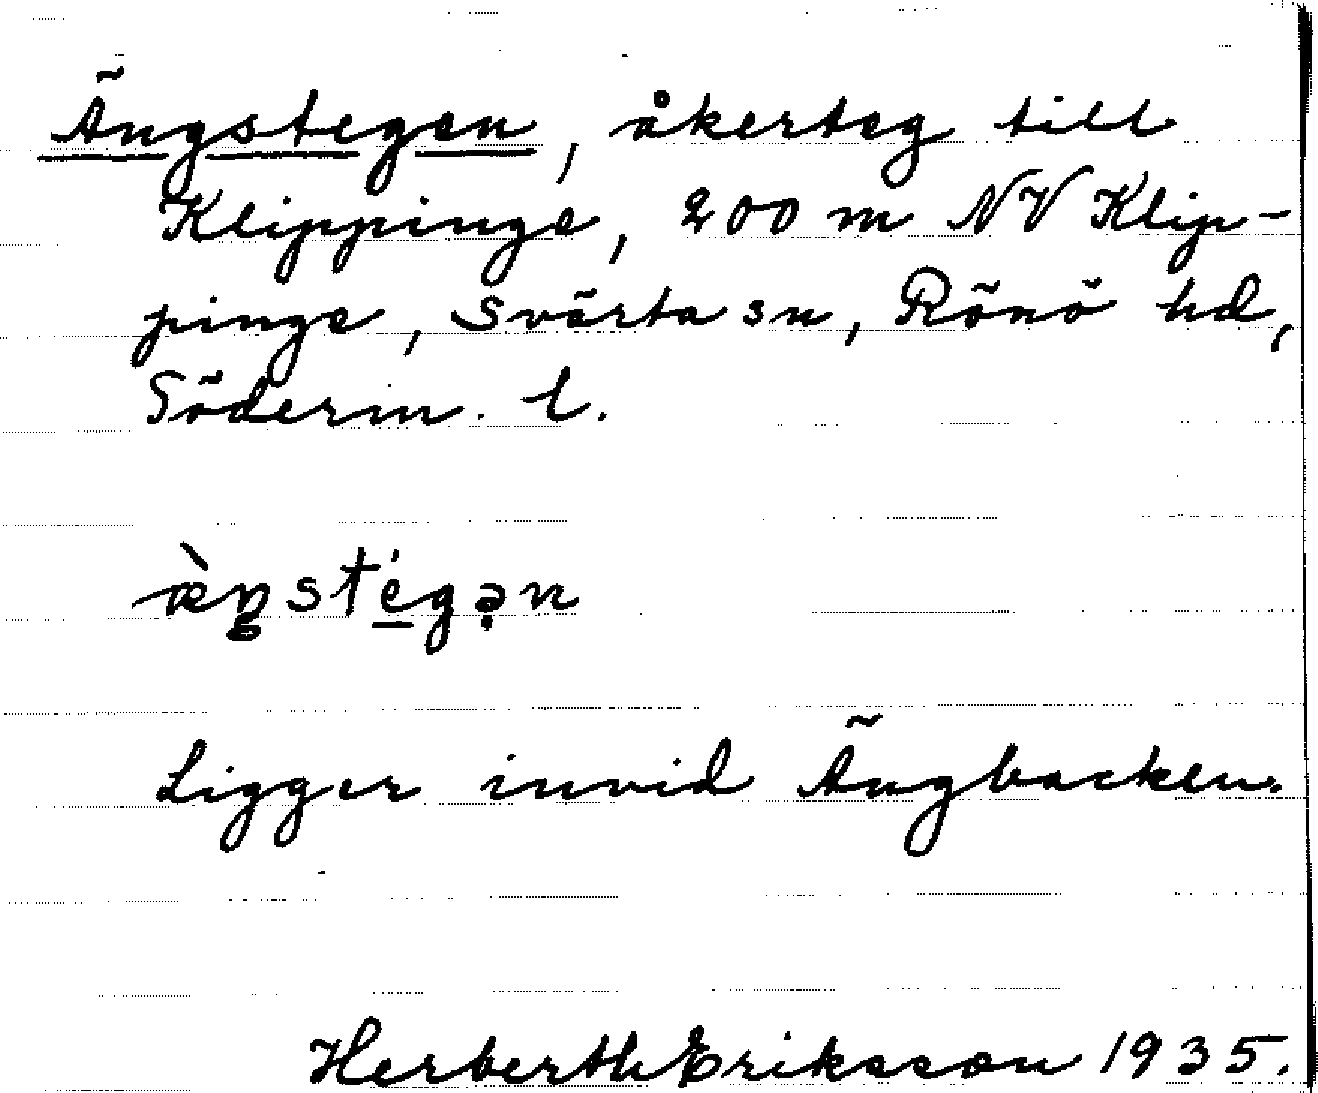 Ängstegen, åkerteg till
Klippinge, 200 m NV Klip-
pinge, Svärta sn, Rönö hd,
Söderm. l.
æ̀ŋstégən
Ligger invid Ängbacken.
Herberth Eriksson 1935.